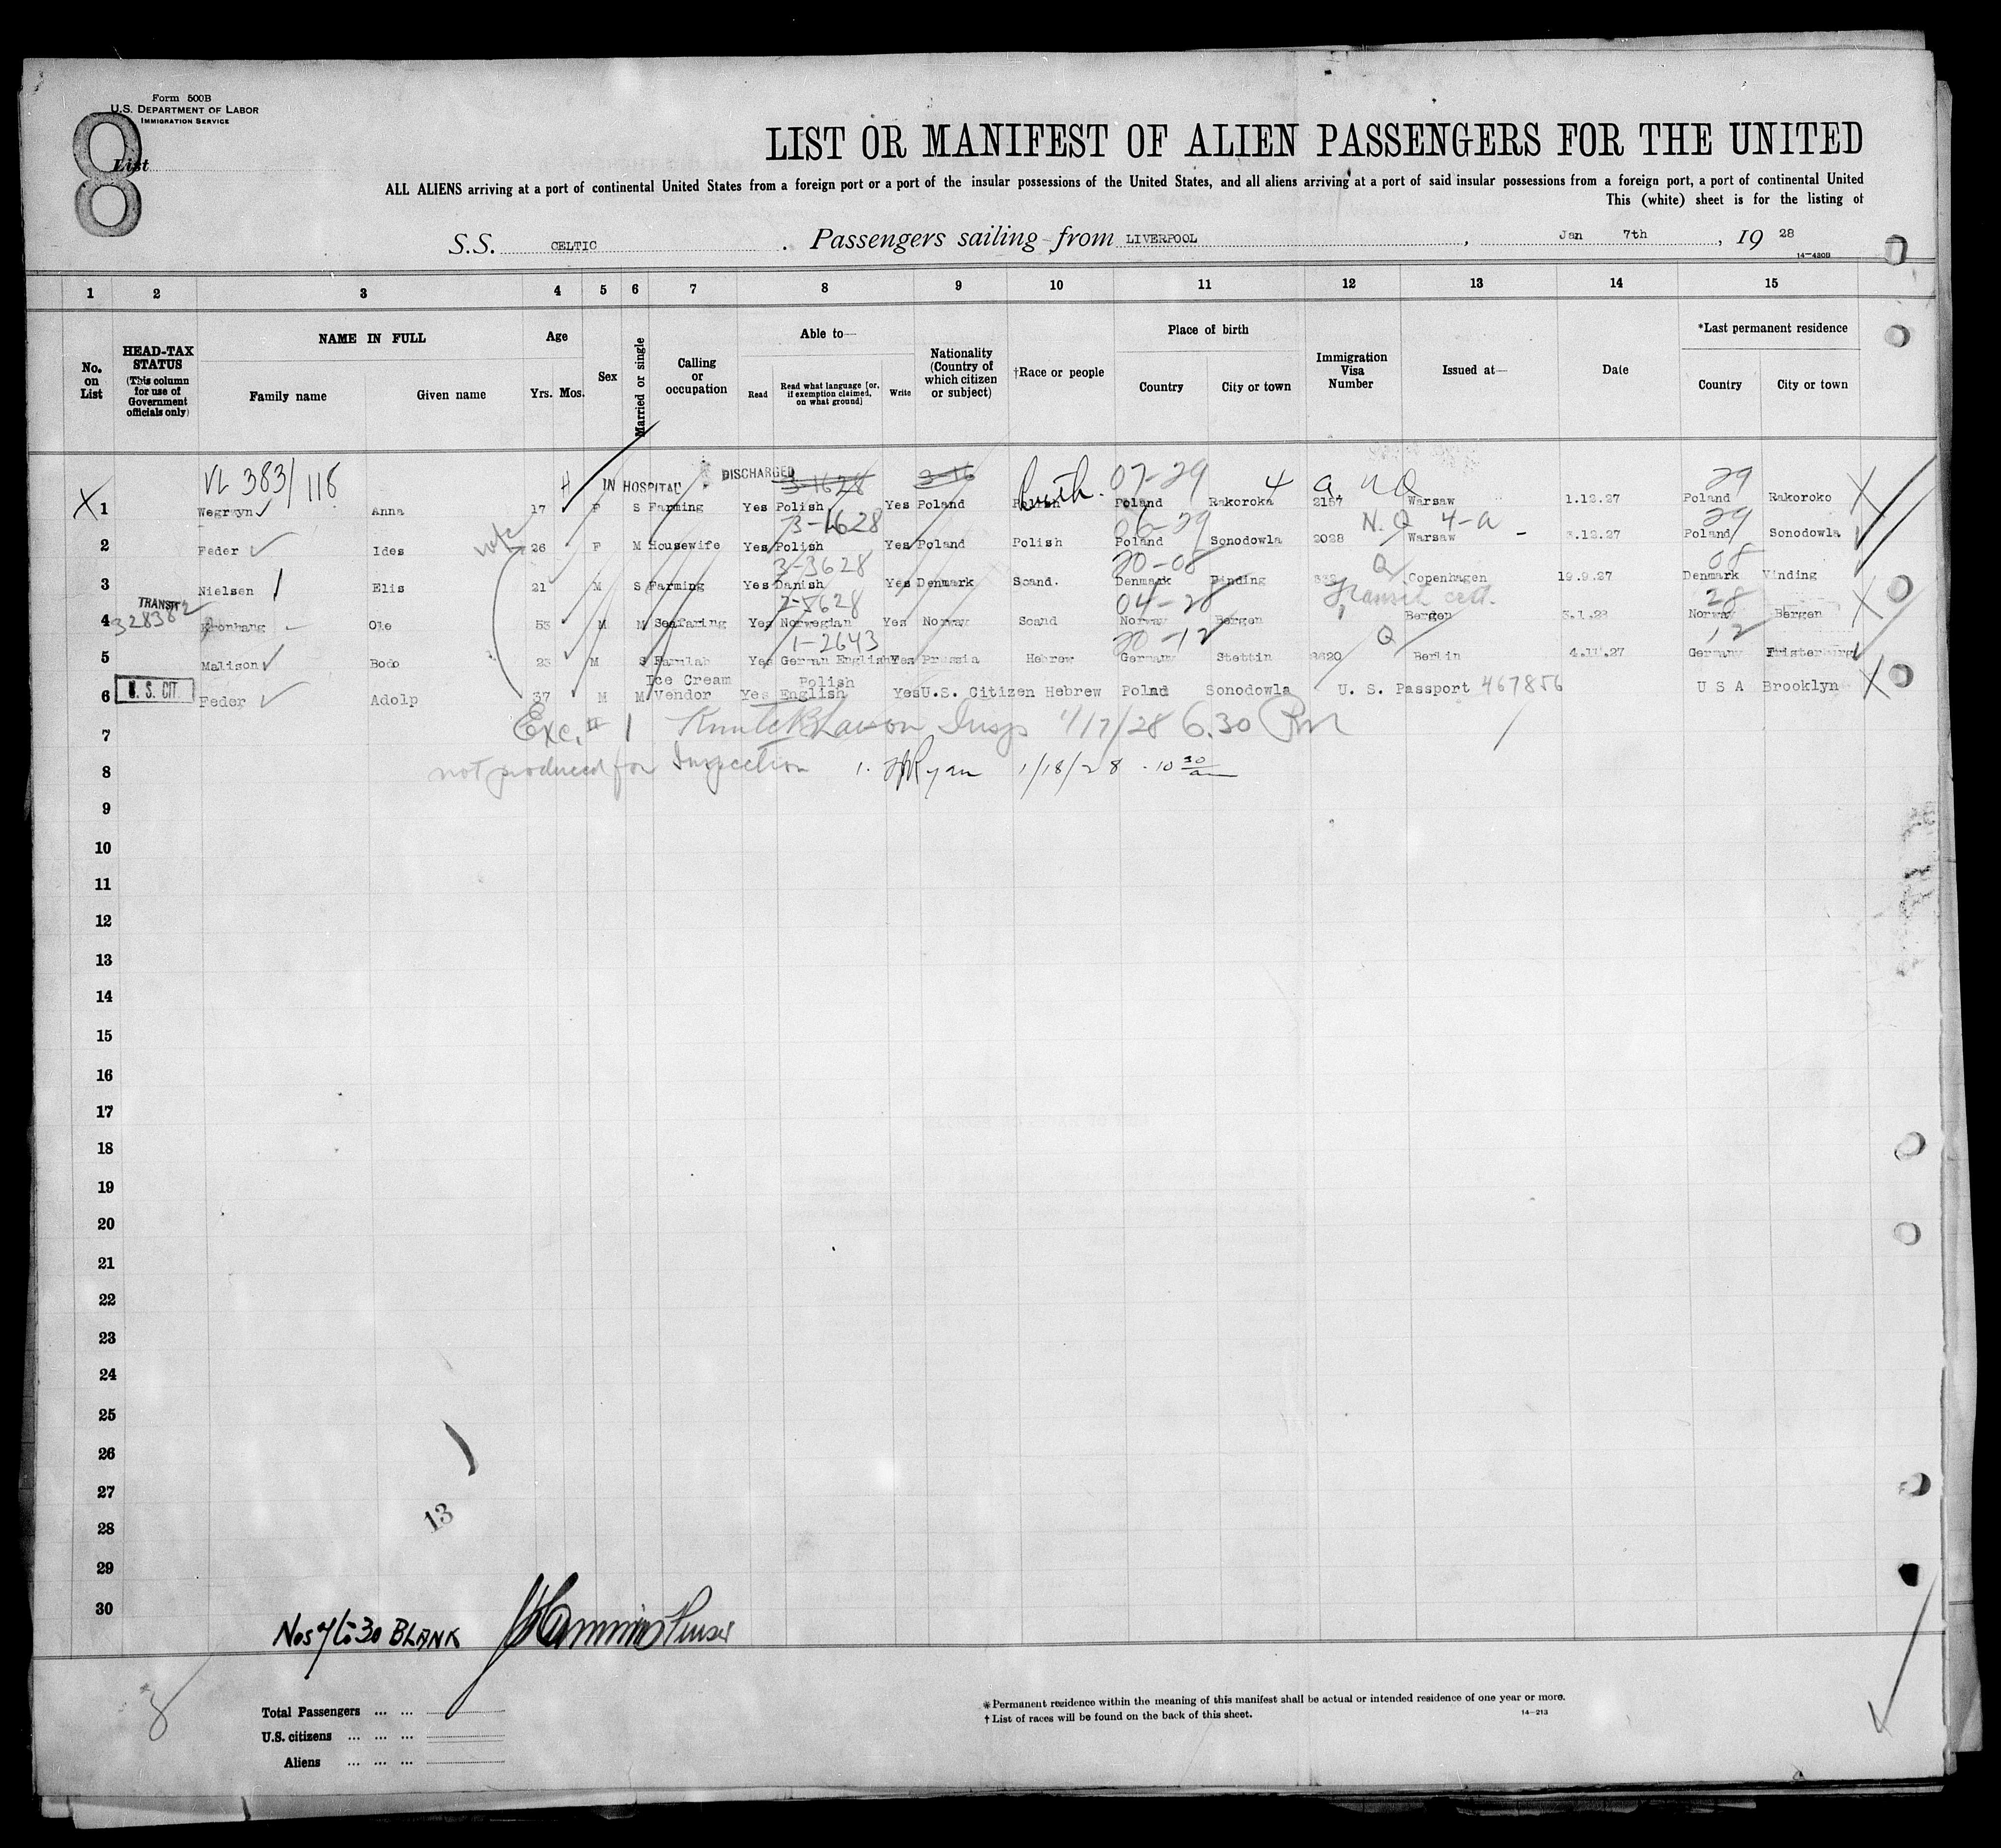 Form 500B
U.S. DEPARTMENT OF LABOR
IMMIGRATION SERVICE
8
List
LIST OR MANIFEST OF ALIEN PASSENGERS FOR THE UNITED
ALL ALIENS arriving at a port of continental United States from a foreign port or a port of the insular possessions of the United States, and all aliens arriving at a port of said insular possessions from a foreign port, a port of continental United
This (white) sheet is for the listing of
S.S. CELTIC . Passengers sailing from LIVERPOOL , Jan 7th , 19 28
14-430B
1 2 3 4 5 6 7 8 9 10 11 12 13 14 15
No. on List
HEAD-TAX STATUS (This column for use of Government officials only)
NAME IN FULL
Family name Given name
Age
Yrs. Mos.
Sex
Married or single
Calling or occupation
Able to—
Read Read what language [or, if exemption claimed, on what ground] Write
Nationality (Country of which citizen or subject)
†Race or people
Place of birth
Country City or town
Immigration Visa Number
Issued at—
Date
*Last permanent residence
Country City or town
VL 383/118 IN HOSPITAL DISCHARGED 3-1628 3-16 07-29 4 29
X 1 Wegrzyn Anna 17 F S Farming Yes Polish Yes Poland Polish Poland Rakoroka 2157 Warsaw 1.12.27 Poland Rakoroko X
3-1628 06-29 N.Q 4-a 29
2 Feder Ides 26 F M Housewife Yes Polish Yes Poland Polish Poland Sonodowla 2028 Warsaw 3.12.27 Poland Sonodowla
3-3628 20-08 Q 08
3 Nielsen Elis 21 M S Farming Yes Danish Yes Denmark Scand. Denmark Vinding Copenhagen 19.9.27 Denmark Vinding
TRANSIT 2-8628 04-28 Transit cert. 28
4 Ole 53 M M Seafaring Yes Norwegian Yes Norway Scand Norway Bergen Bergen 3.1.28 Norway Bergen X
1-2643 20-12 Q 12
5 Malison Bodo 23 M S Farmlab Yes German English Yes Prussia Hebrew Germany Stettin 3620 Berlin 4.11.27 Germany
Ice Cream Polish
U. S. CIT. 6 Feder Adolp 37 M M Vendor Yes English Yes U.S. Citizen Hebrew Polnd Sonodowla U. S. Passport 467856 U S A Brooklyn X
7 Exc. # 1 Insp 1/17/28 6.30 Pm
8 not produced for Inspection 1. Ryan 1/18/28 10 30 am
9
10
11
12
13
14
15
16
17
18
19
20
21
22
23
24
25
26
27
13
28
29
30
Nos 7 to 30 BLANK Purser
8
Total Passengers ... ...
U.S. citizens ... ... ...
Aliens ... ... ...
*Permanent residence within the meaning of this manifest shall be actual or intended residence of one year or more.
†List of races will be found on the back of this sheet.
14-213